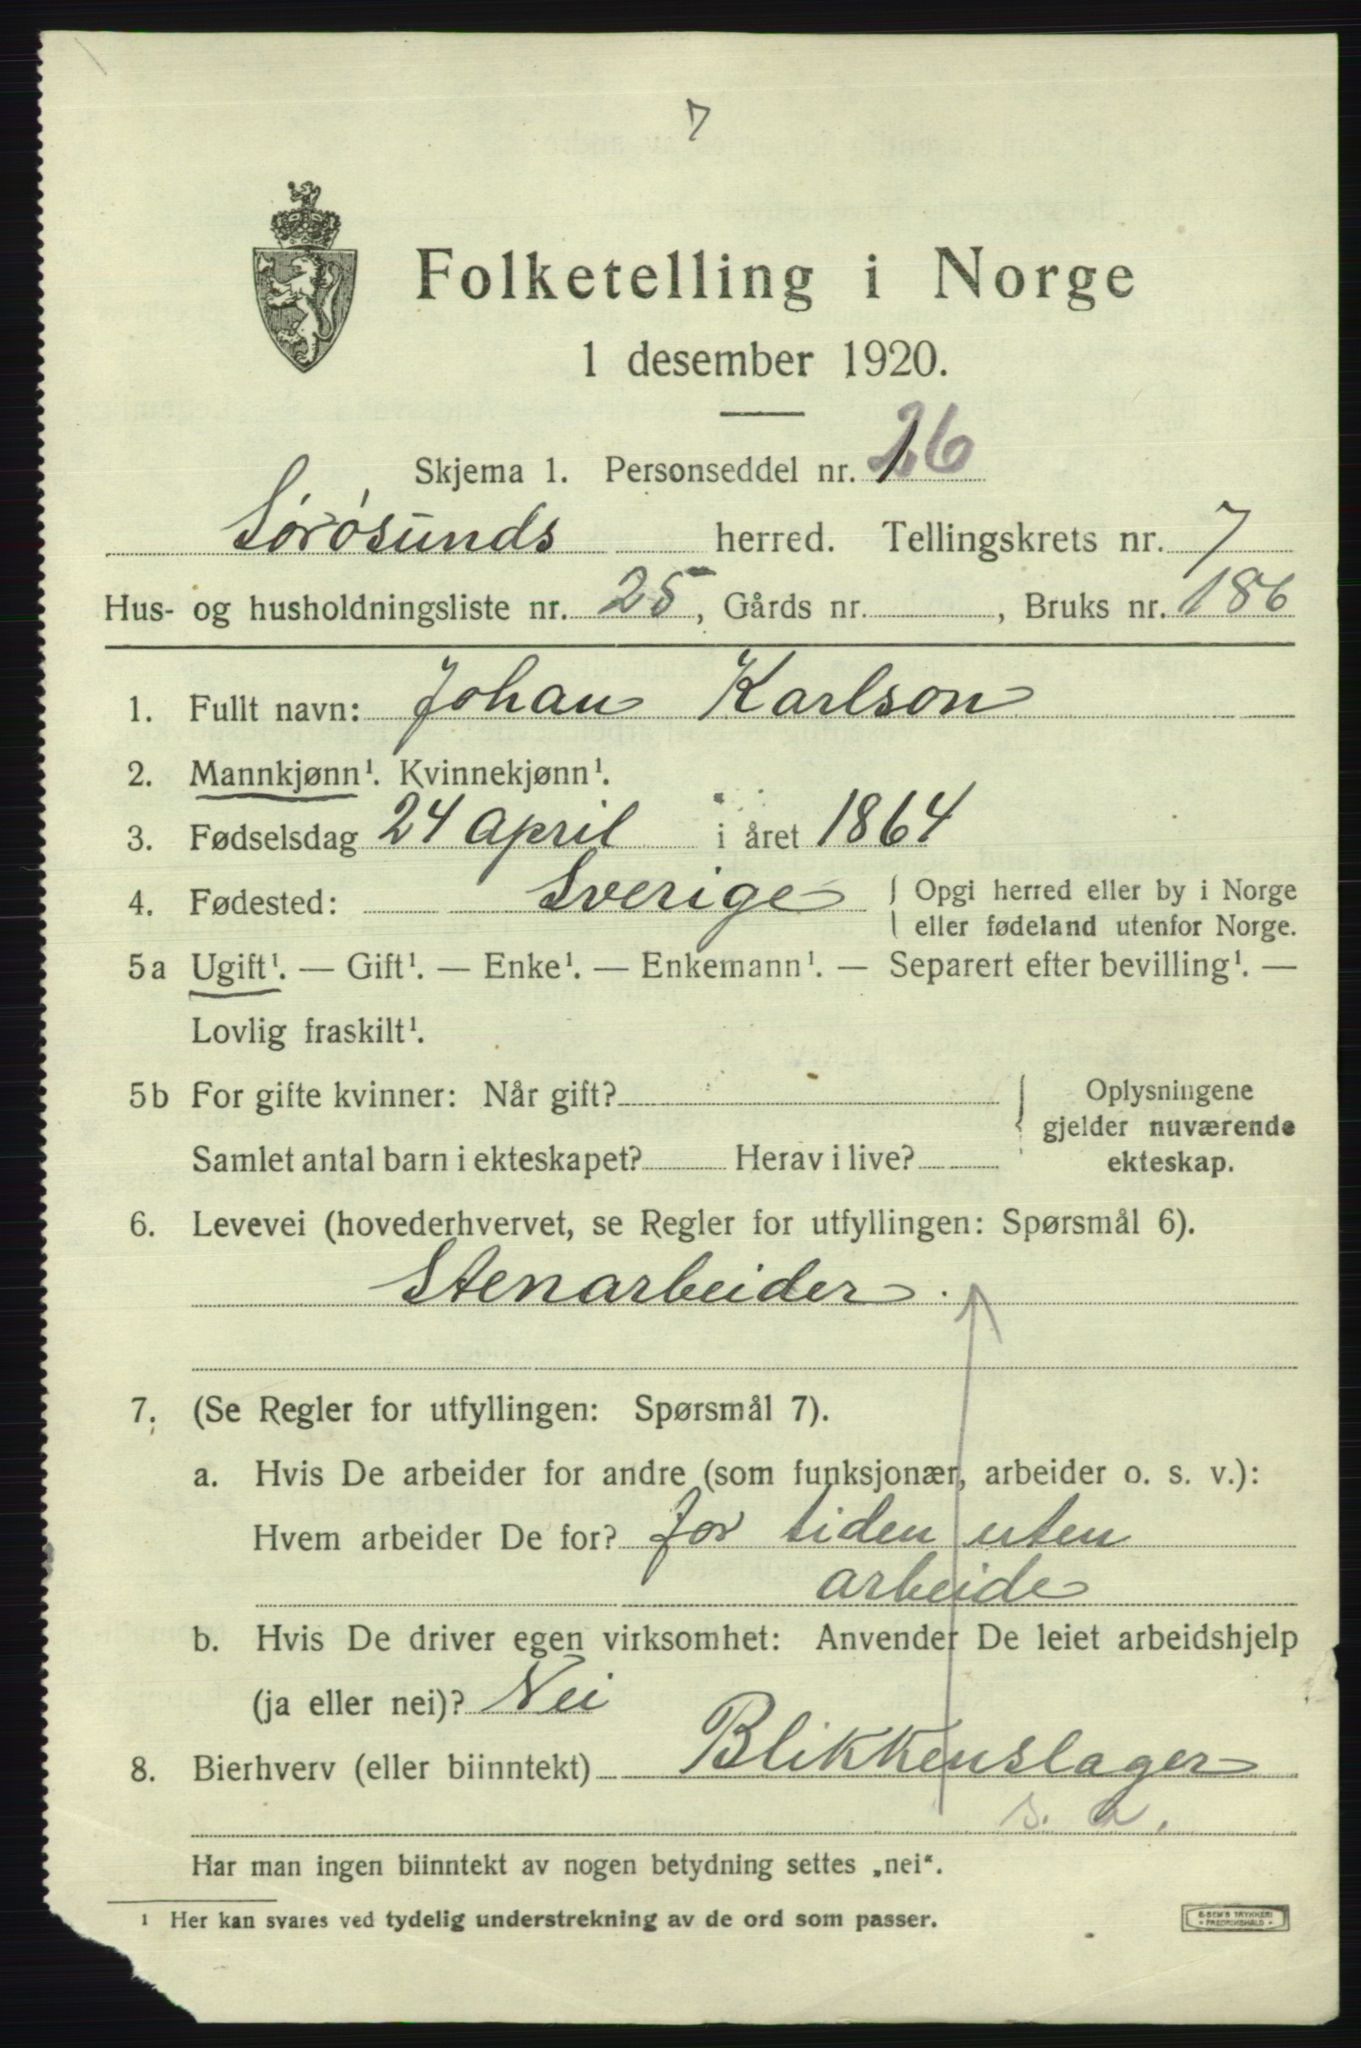 7
Folketelling i Norge
1 desember 1920.
Skjema 1. Personseddel nr. 26
Sørøsunds herred. Tellingskrets nr. 7
Hus- og husholdningsliste nr. 25, Gårds nr. , Bruks nr. 186
1. Fullt navn: Johan Karlson
2. Mannkjønn¹. Kvinnekjønn¹.
3. Fødselsdag 24 april i året 1864
4. Fødested: Sverige { Opgi herred eller by i Norge
eller fødeland utenfor Norge.
5a Ugift¹. — Gift¹. — Enke¹. — Enkemann¹. — Separert efter bevilling¹. —
Lovlig fraskilt¹.
5b For gifte kvinner: Når gift? } Oplysningene
gjelder nuværende
Samlet antal barn i ekteskapet? Herav i live? ekteskap.
6. Levevei (hovederhvervet, se Regler for utfyllingen: Spørsmål 6).
Stenarbeider.
7. (Se Regler for utfyllingen: Spørsmål 7).
a. Hvis De arbeider for andre (som funksjonær, arbeider o. s. v.):
Hvem arbeider De for? for tiden uten
arbeide
b. Hvis De driver egen virksomhet: Anvender De leiet arbeidshjelp
(ja eller nei)? Nei
8. Bierhverv (eller biinntekt) Blikkenslager
s. a.
Har man ingen biinntekt av nogen betydning settes „nei“.
¹ Her kan svares ved tydelig understrekning av de ord som passer.
E. SEM'S TRYKKERI
FREDRIKSHALD